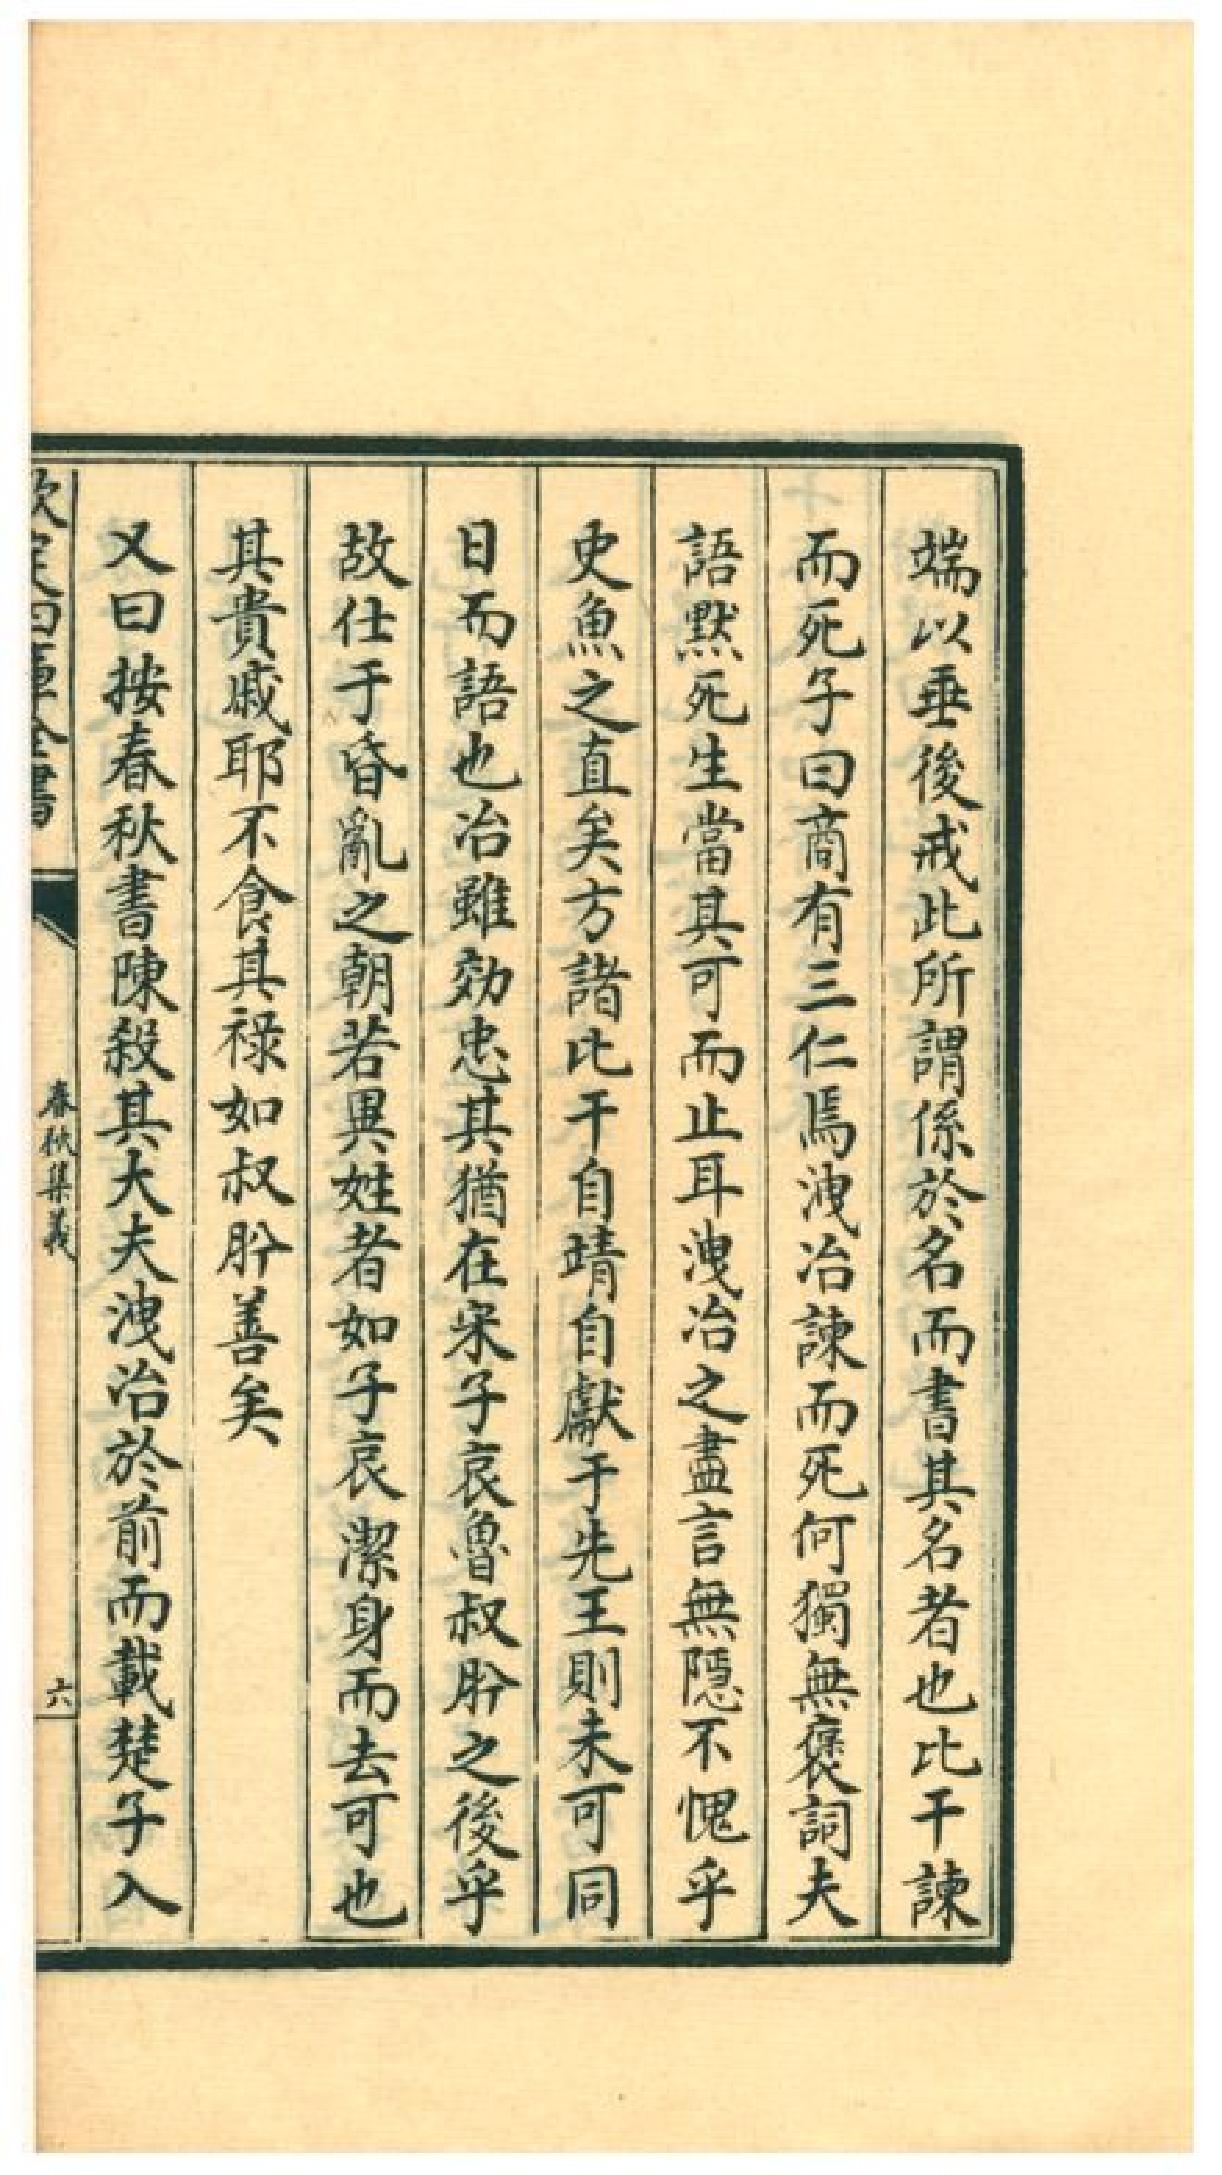 端以垂後戒此所謂係於名而書其名者也比干諫
而死子曰商有三仁焉洩冶諫而死何獨無褒詞夫
語默死生當其可而止耳洩冶之盡言無隱不愧乎
史魚之直矣方諸比干自靖自獻于先王則未可同
日而語也冶雖効忠其猶在宋子哀魯叔肸之後乎
故仕于昏亂之朝若異姓者如子哀潔身而去可也
其貴戚耶不食其祿如叔肸善矣
又曰按春秋書陳殺其大夫洩冶於前而載楚子入
欽定四庫全書
春秋集義
六